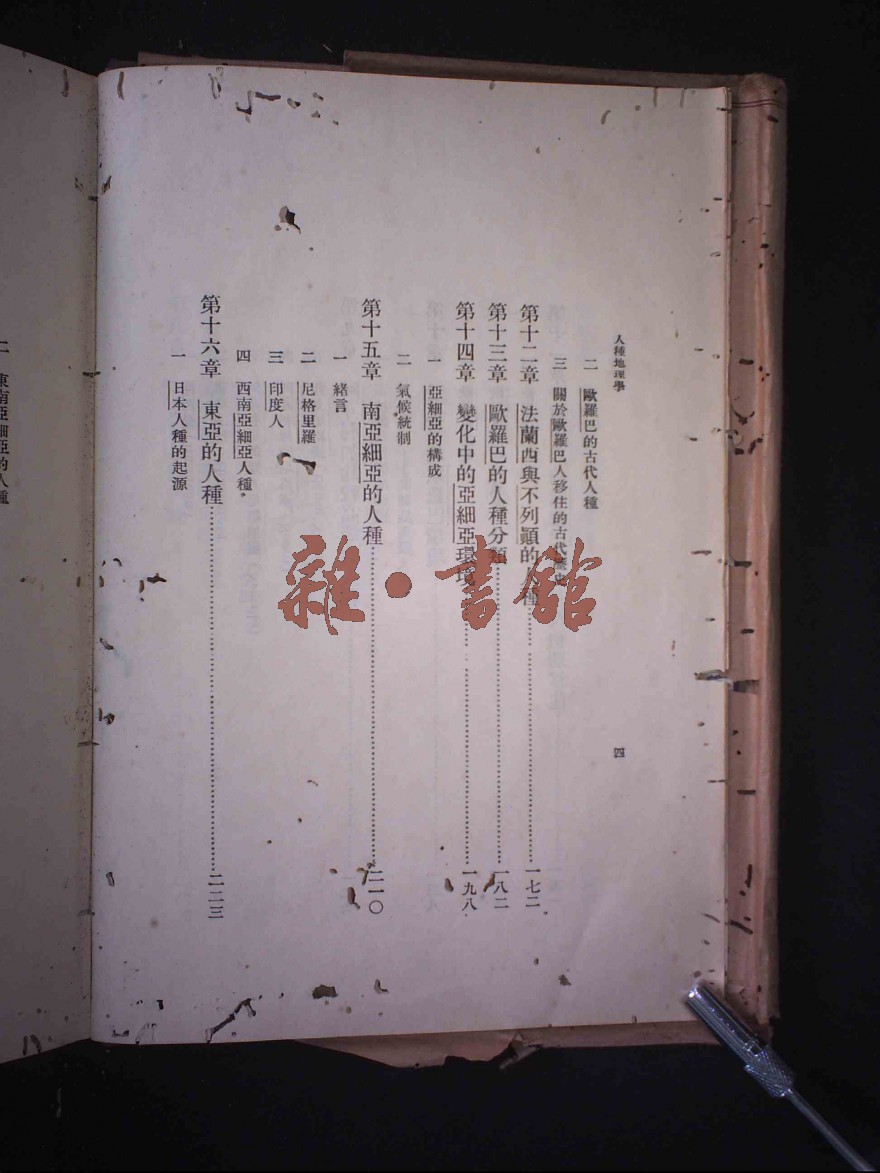 人種地理學
四
二 歐羅巴的古代人種
三 關於歐羅巴人移住的古代歷史
第十二章 法蘭西與不列顚的人種 一七二
第十三章 歐羅巴的人種分類 一八二
第十四章 變化中的亞細亞環境 一九八
亞細亞的構成
二 氣候統制
第十五章 南亞細亞的人種 二一〇
一 緒言
二 尼格里羅
三 印度人
四 西南亞細亞人種
第十六章 東亞的人種 二二三
一 日本人種的起源
二 東南亞細亞的人種
雜·書館